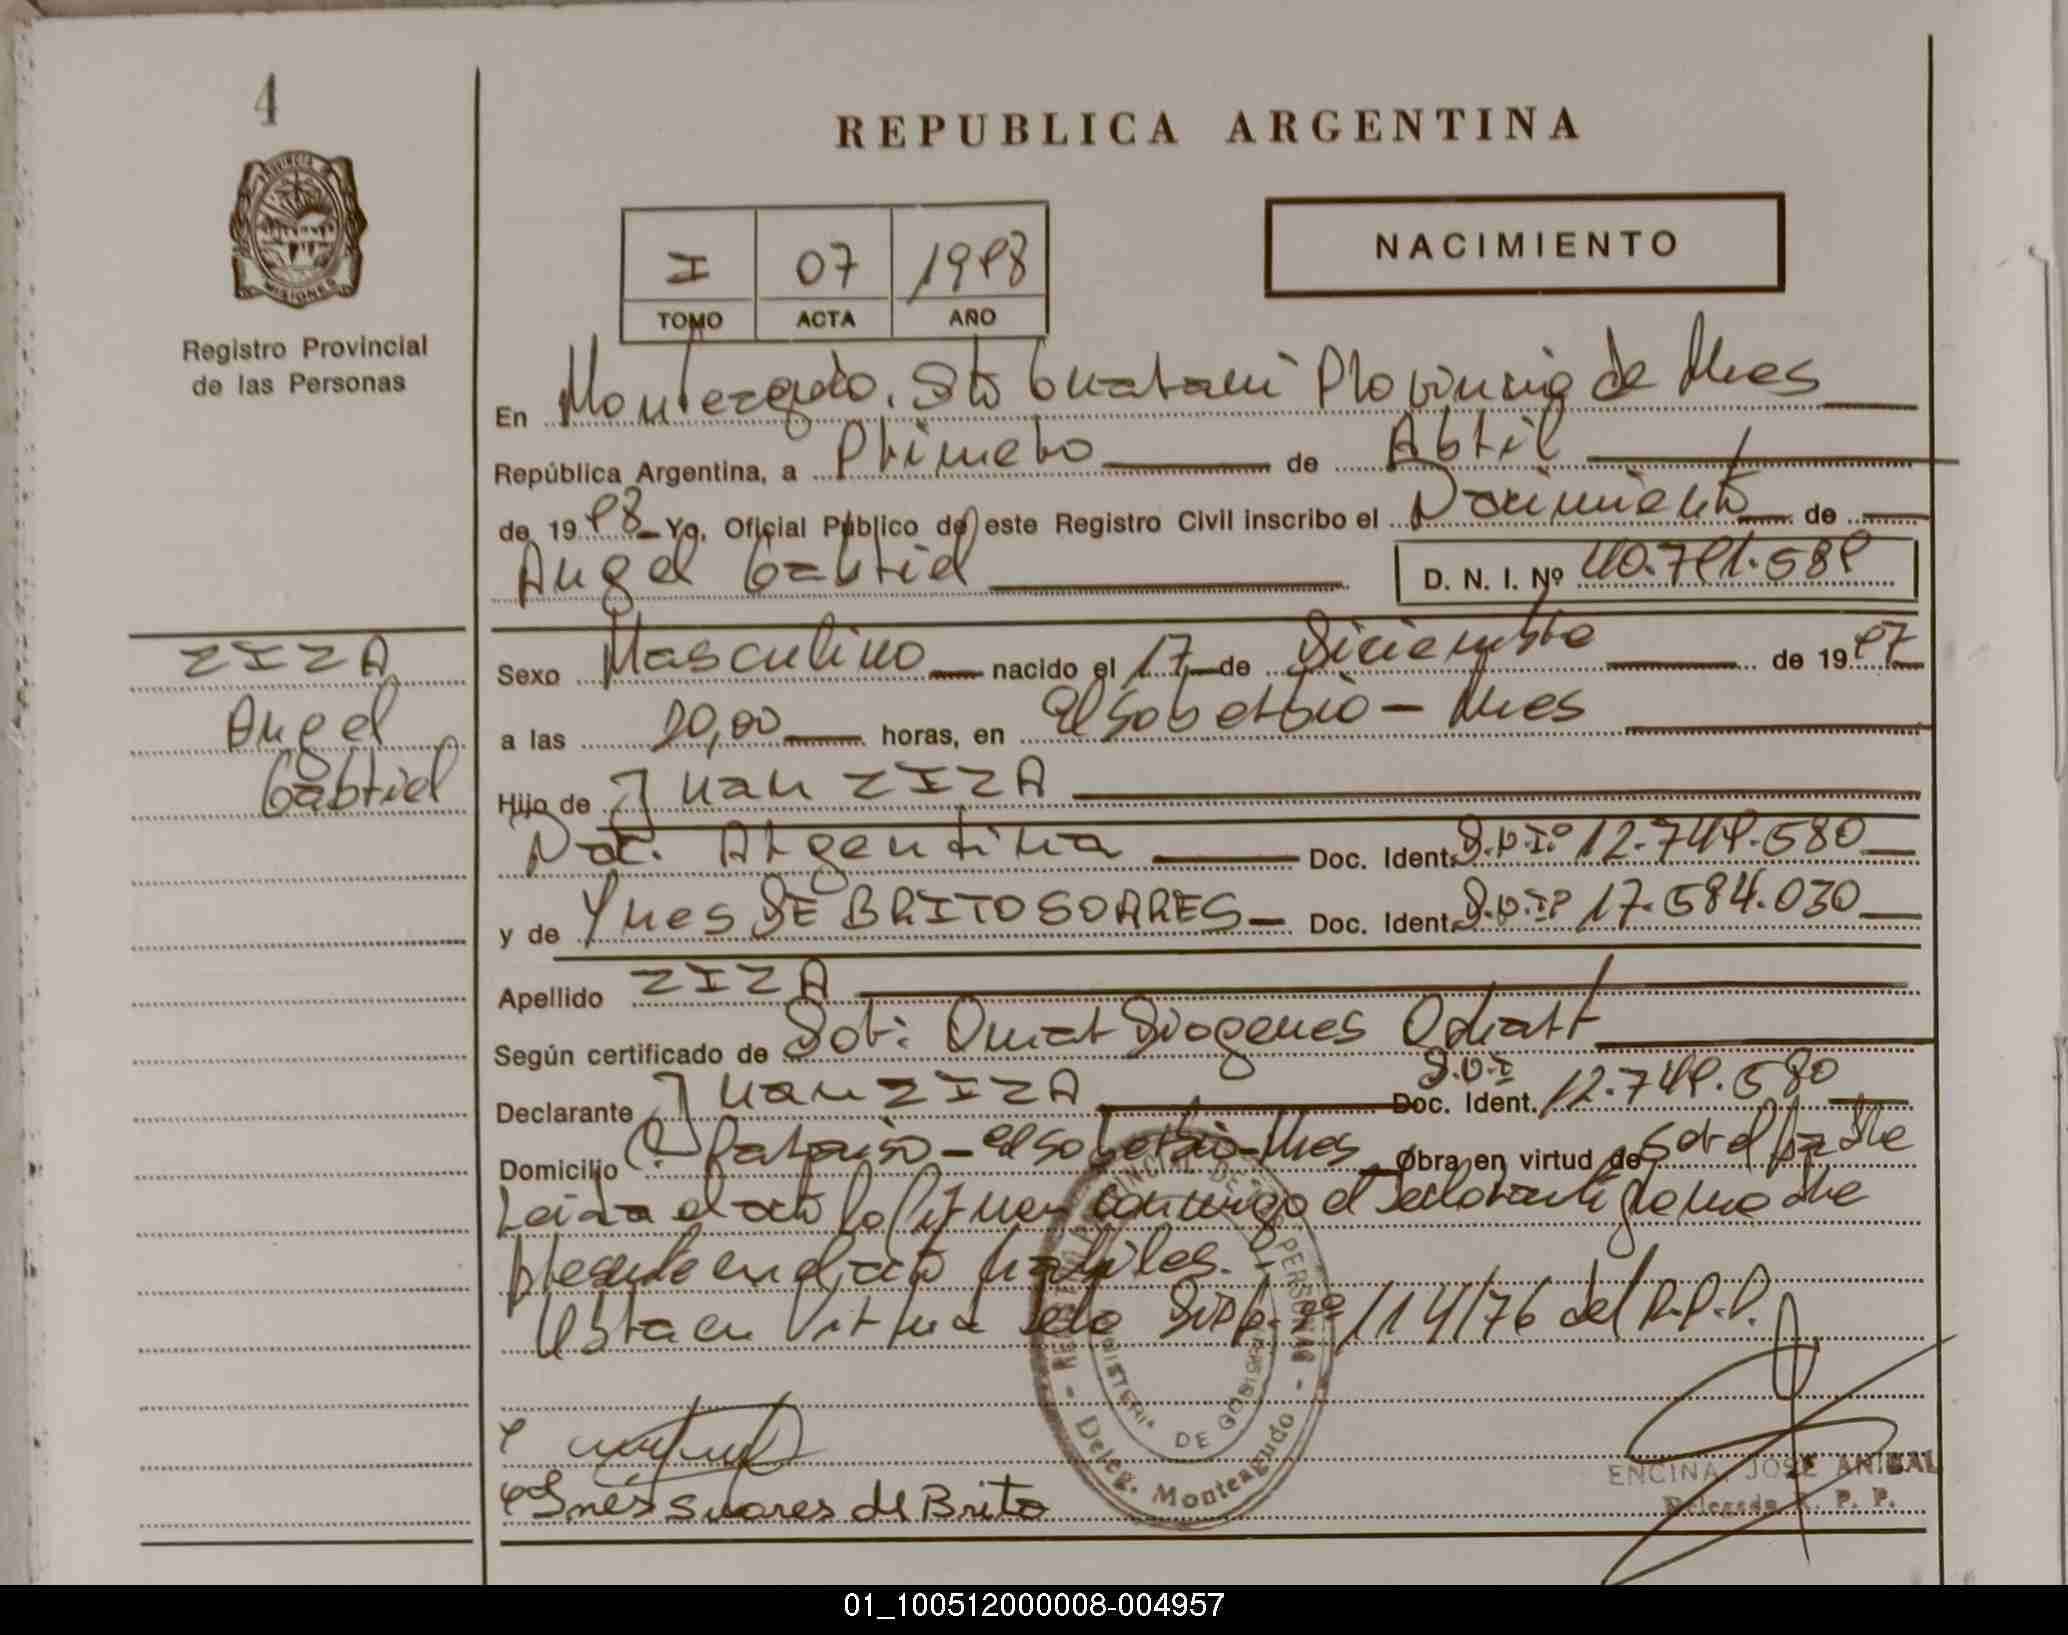 4
REPUBLICA ARGENTINA
PROVINCIA
MISIONES
Registro Provincial
de las Personas
I 07 1998
TOMO ACTA AÑO
NACIMIENTO
En Monteagudo. Dto Guarani Provincia de Mnes
República Argentina, a Primero de Abril
de 1998 Yo, Oficial Público de este Registro Civil inscribo el Nacimiento de
Angel Gabriel D. N. I. Nº 40.791.589
ZIZA
Angel
Gabriel
Sexo Masculino nacido el 17 de Diciembre de 1997
a las 20,00 horas, en El Soberbio - Mnes
Hijo de Juan ZIZA
Nac. Argentina Doc. Ident. D.N.Iº 12.749.580
y de Ynes DE BRITO SOARES Doc. Ident. D.N.Iº 17.584.030
Apellido ZIZA
Según certificado de Dor: Omar Diogenes Odiart
Declarante Juan ZIZA Doc. Ident. D.N.I 12.749.580
Domicilio Cº Paraiso - El Soberbio - Mnes Obra en virtud de Ser el padre
Leida el acta la firman conmigo el declarante y la madre
presente en el acto habiles.
Obra en Virtud de la Disp. nº 114/76 del R.P.P.
Ines Suares de Brito
REGISTRO PROVINCIAL DE LAS PERSONAS
MINISTERIO DE GOBIERNO
Deleg. Monteagudo
ENCINA, JOSE ANIBAL
Delegado R. P. P.
01_100512000008-004957